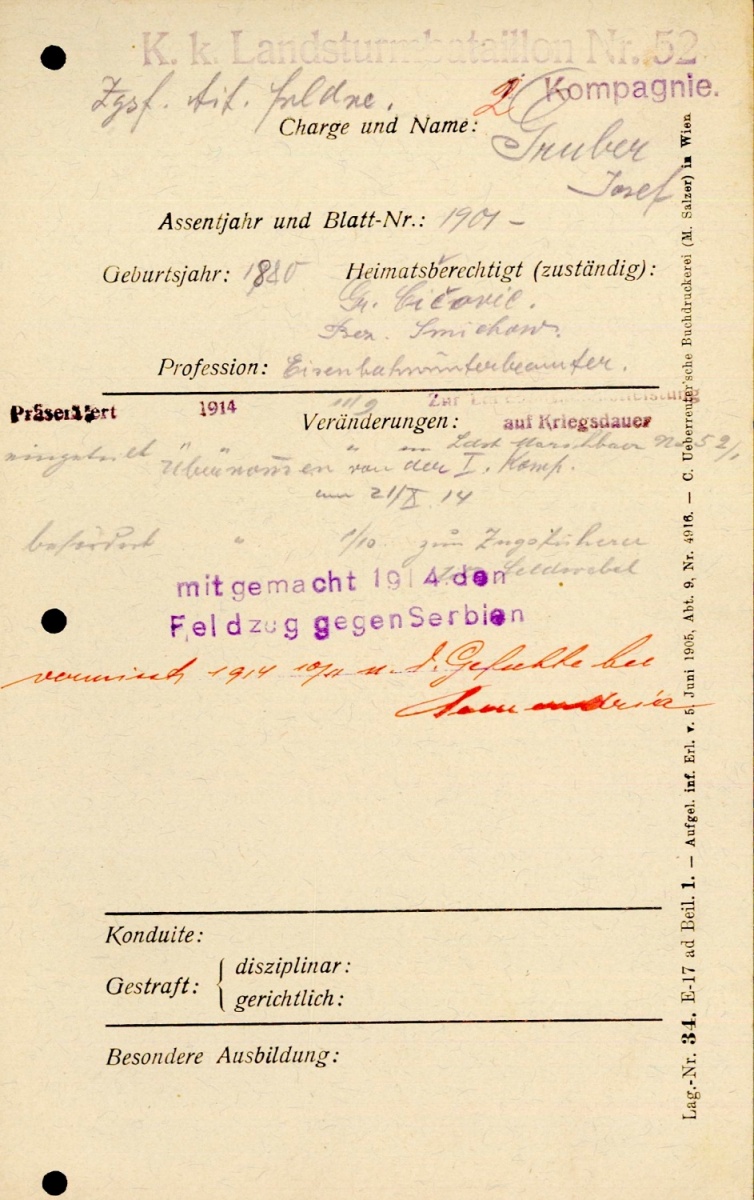 K. k. Landsturmbataillon Nr. 52
2 Kompagnie.
Zgsf. tit. Feldw.
Charge und Name: Gruber
Josef
Assentjahr und Blatt-Nr.: 1901 –
Geburtsjahr: 1880 Heimatsberechtigt (zuständig):
Gr. Čičovic.
Bez. Smichow.
Profession: Eisenbahnunterbeamter.
Präsentiert 1914 11/9 Zur
Veränderungen: auf Kriegsdauer
eingeteilt " " in Ldst Marschbaon No 52/1
Übernommen von der I. Komp.
am 21/X 14
befördert " 1/10 zum Zugsführer
tit. Feldwebel
mitgemacht 1914 den
Feldzug gegen Serbien
vermisst 1914 10/11 n. d. Gefechte bei
Semendria
Konduite:
Gestraft: { disziplinar:
gerichtlich:
Besondere Ausbildung:
Lag.-Nr. 34. E-17 ad Beil. 1. — Aufgel. inf. Erl. v. 5. Juni 1905, Abt. 9, Nr. 4916. — C. Ueberreuter'sche Buchdruckerei (M. Salzer) in Wien